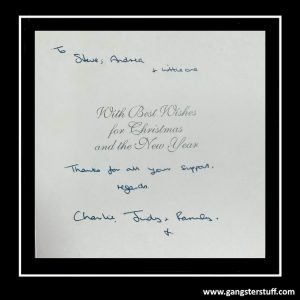 To
Steve, Andrea
& little one
With Best Wishes
for Christmas
and the New Year
Thanks for all your support.
regards
Charlie, Judy, & Family.
&
www.gangsterstuff.com